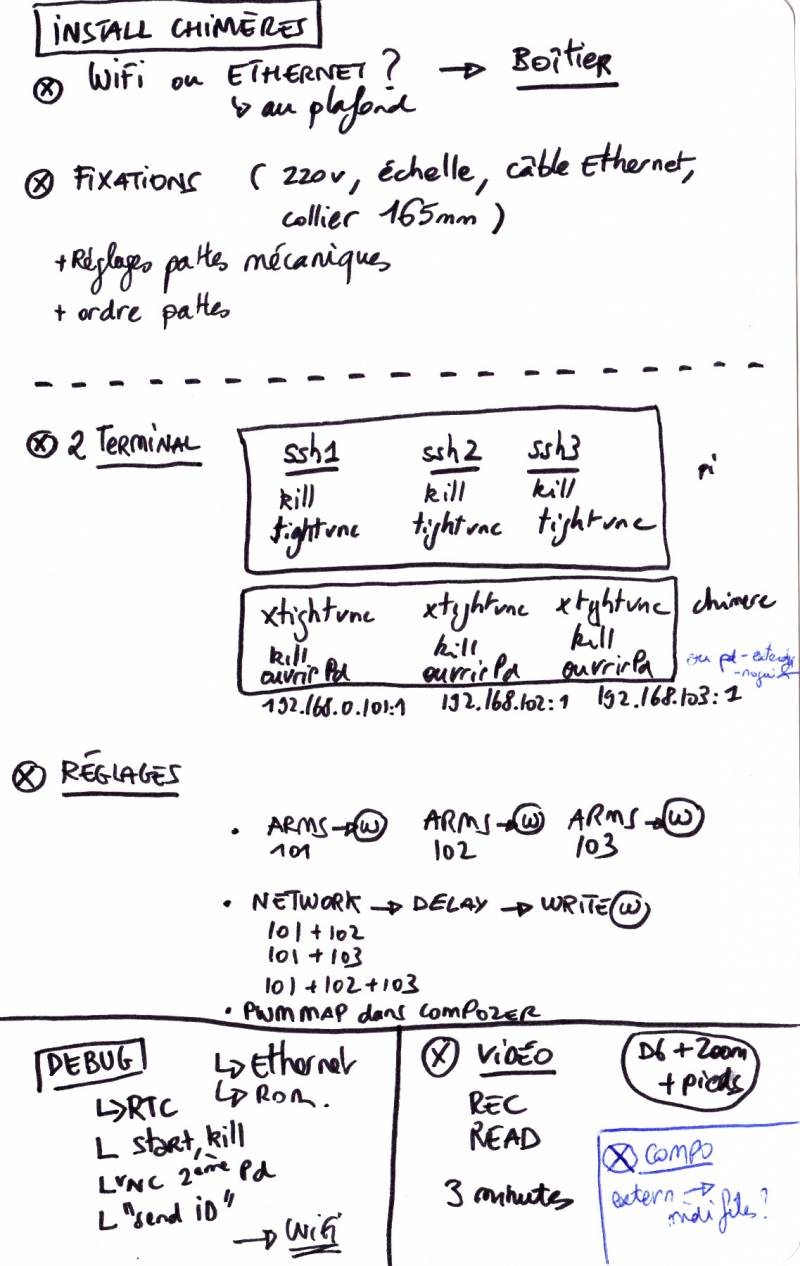 INSTALL CHIMÈRES
ⓧ WiFi ou ETHERNET ? → BOÎTIER
↳ au plafond
ⓧ FIXATIONS ( 220v, échelle, câble Ethernet,
collier 165mm )
+ Réglages pattes mécaniques
+ ordre pattes
ⓧ 2 TERMINAL
ssh1 ssh2 ssh3
kill kill kill
tightvnc tightvnc tightvnc
pi
xtightvnc xtightvnc xtightvnc
kill kill kill
ouvrir Pd ouvrir Pd ouvrir Pd
chimere
ou pd-extended
192.168.0.101:1 192.168.102:1 192.168.103:1
ⓧ RÉGLAGES
• ARMS → ⓦ ARMS → ⓦ ARMS → ⓦ
101 102 103
• NETWORK → DELAY → WRITE ⓦ
101 + 102
101 + 103
101 + 102 + 103
• PWMMAP dans COMPOZER
DEBUG
↳ Ethernet
↳ ROM.
↳ RTC
L start, kill
L VNC 2ème Pd
L "send iD"
→ WiFi
ⓧ VIDÉO
REC
READ
3 minutes
D6 + Zoom
+ pieds
ⓧ COMPO
extern →
midi files?